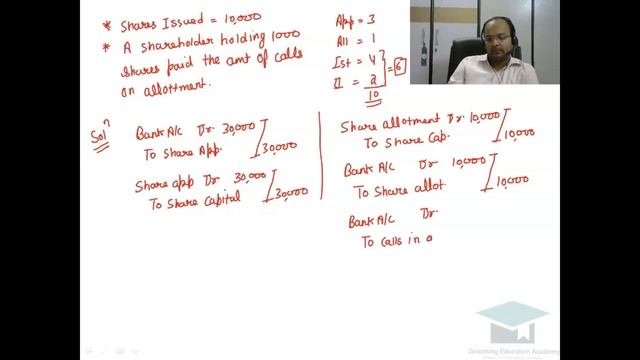 * Shares Issued = 10,000
* A shareholder holding 1000
shares paid the amt of calls
on allottment.
App = 3
All = 1
Ist = 4
II = 2
10
= 6
Solⁿ
Bank A/c Dr. 30,000
To Share App. 30,000
Share app Dr 30,000
To Share Capital 30,000
Share allotment Dr. 10,000
To Share Cap. 10,000
Bank A/c Dr 10,000
To Share allot. 10,000
Bank A/c Dr.
To Calls in a
Grooming Education Academy